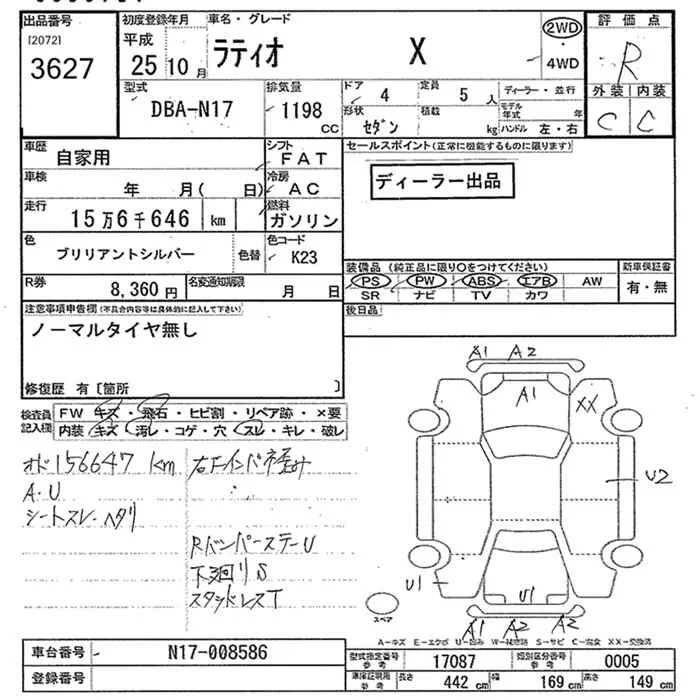 出品番号 初度登録年月 車名・グレード 評価点
[2072] 平成 ラティオ X 2WD
3627 25年10月 ・ 4WD R
型式 排気量 ドア 4 定員 5人 ディーラー・並行 外装 内装
DBA-N17 1198cc 形状 セダン 積載 kg モデル年式 年 C C
ハンドル 左・右
車歴 自家用 シフト FAT セールスポイント(正常に機能するものに限ります)
車検 年 月( 日) 冷房 AC ディーラー出品
走行 15万6千646 km 燃料 ガソリン
色 ブリリアントシルバー 色替 色コード K23
装備品 (純正品に限り○をつけてください) 新車保証書
R券 8,360円 名変通知期限 月 日 PS PW ABS エアB AW 有・無
SR ナビ TV カワ
注意事項申告欄(不具合内容等は具体的に記入して下さい) 後日品
ノーマルタイヤ無し
修復歴 有〔箇所 〕
検査員記入欄 FW キズ・飛石・ヒビ割・リペア跡・×要
内装 キズ・汚レ・コゲ・穴・スレ・キレ・破レ
オド156647km 右Fインパネ歪み
A・U
シートスレ・ヘタリ
RバンパーステーU
下廻りS
スタッドレスT
A1 A2
A1 XX
U2
U1 U1
A1 A2 A2
スペア
A-キズ E-エクボ U-凹み S-サビ C-腐食 XX-交換済
車台番号 N17-008586 型式指定番号 参考 17087 類別区分番号 参考 0005
登録番号 車検証現用 参考 長さ 442cm 幅 169cm 高さ 149cm